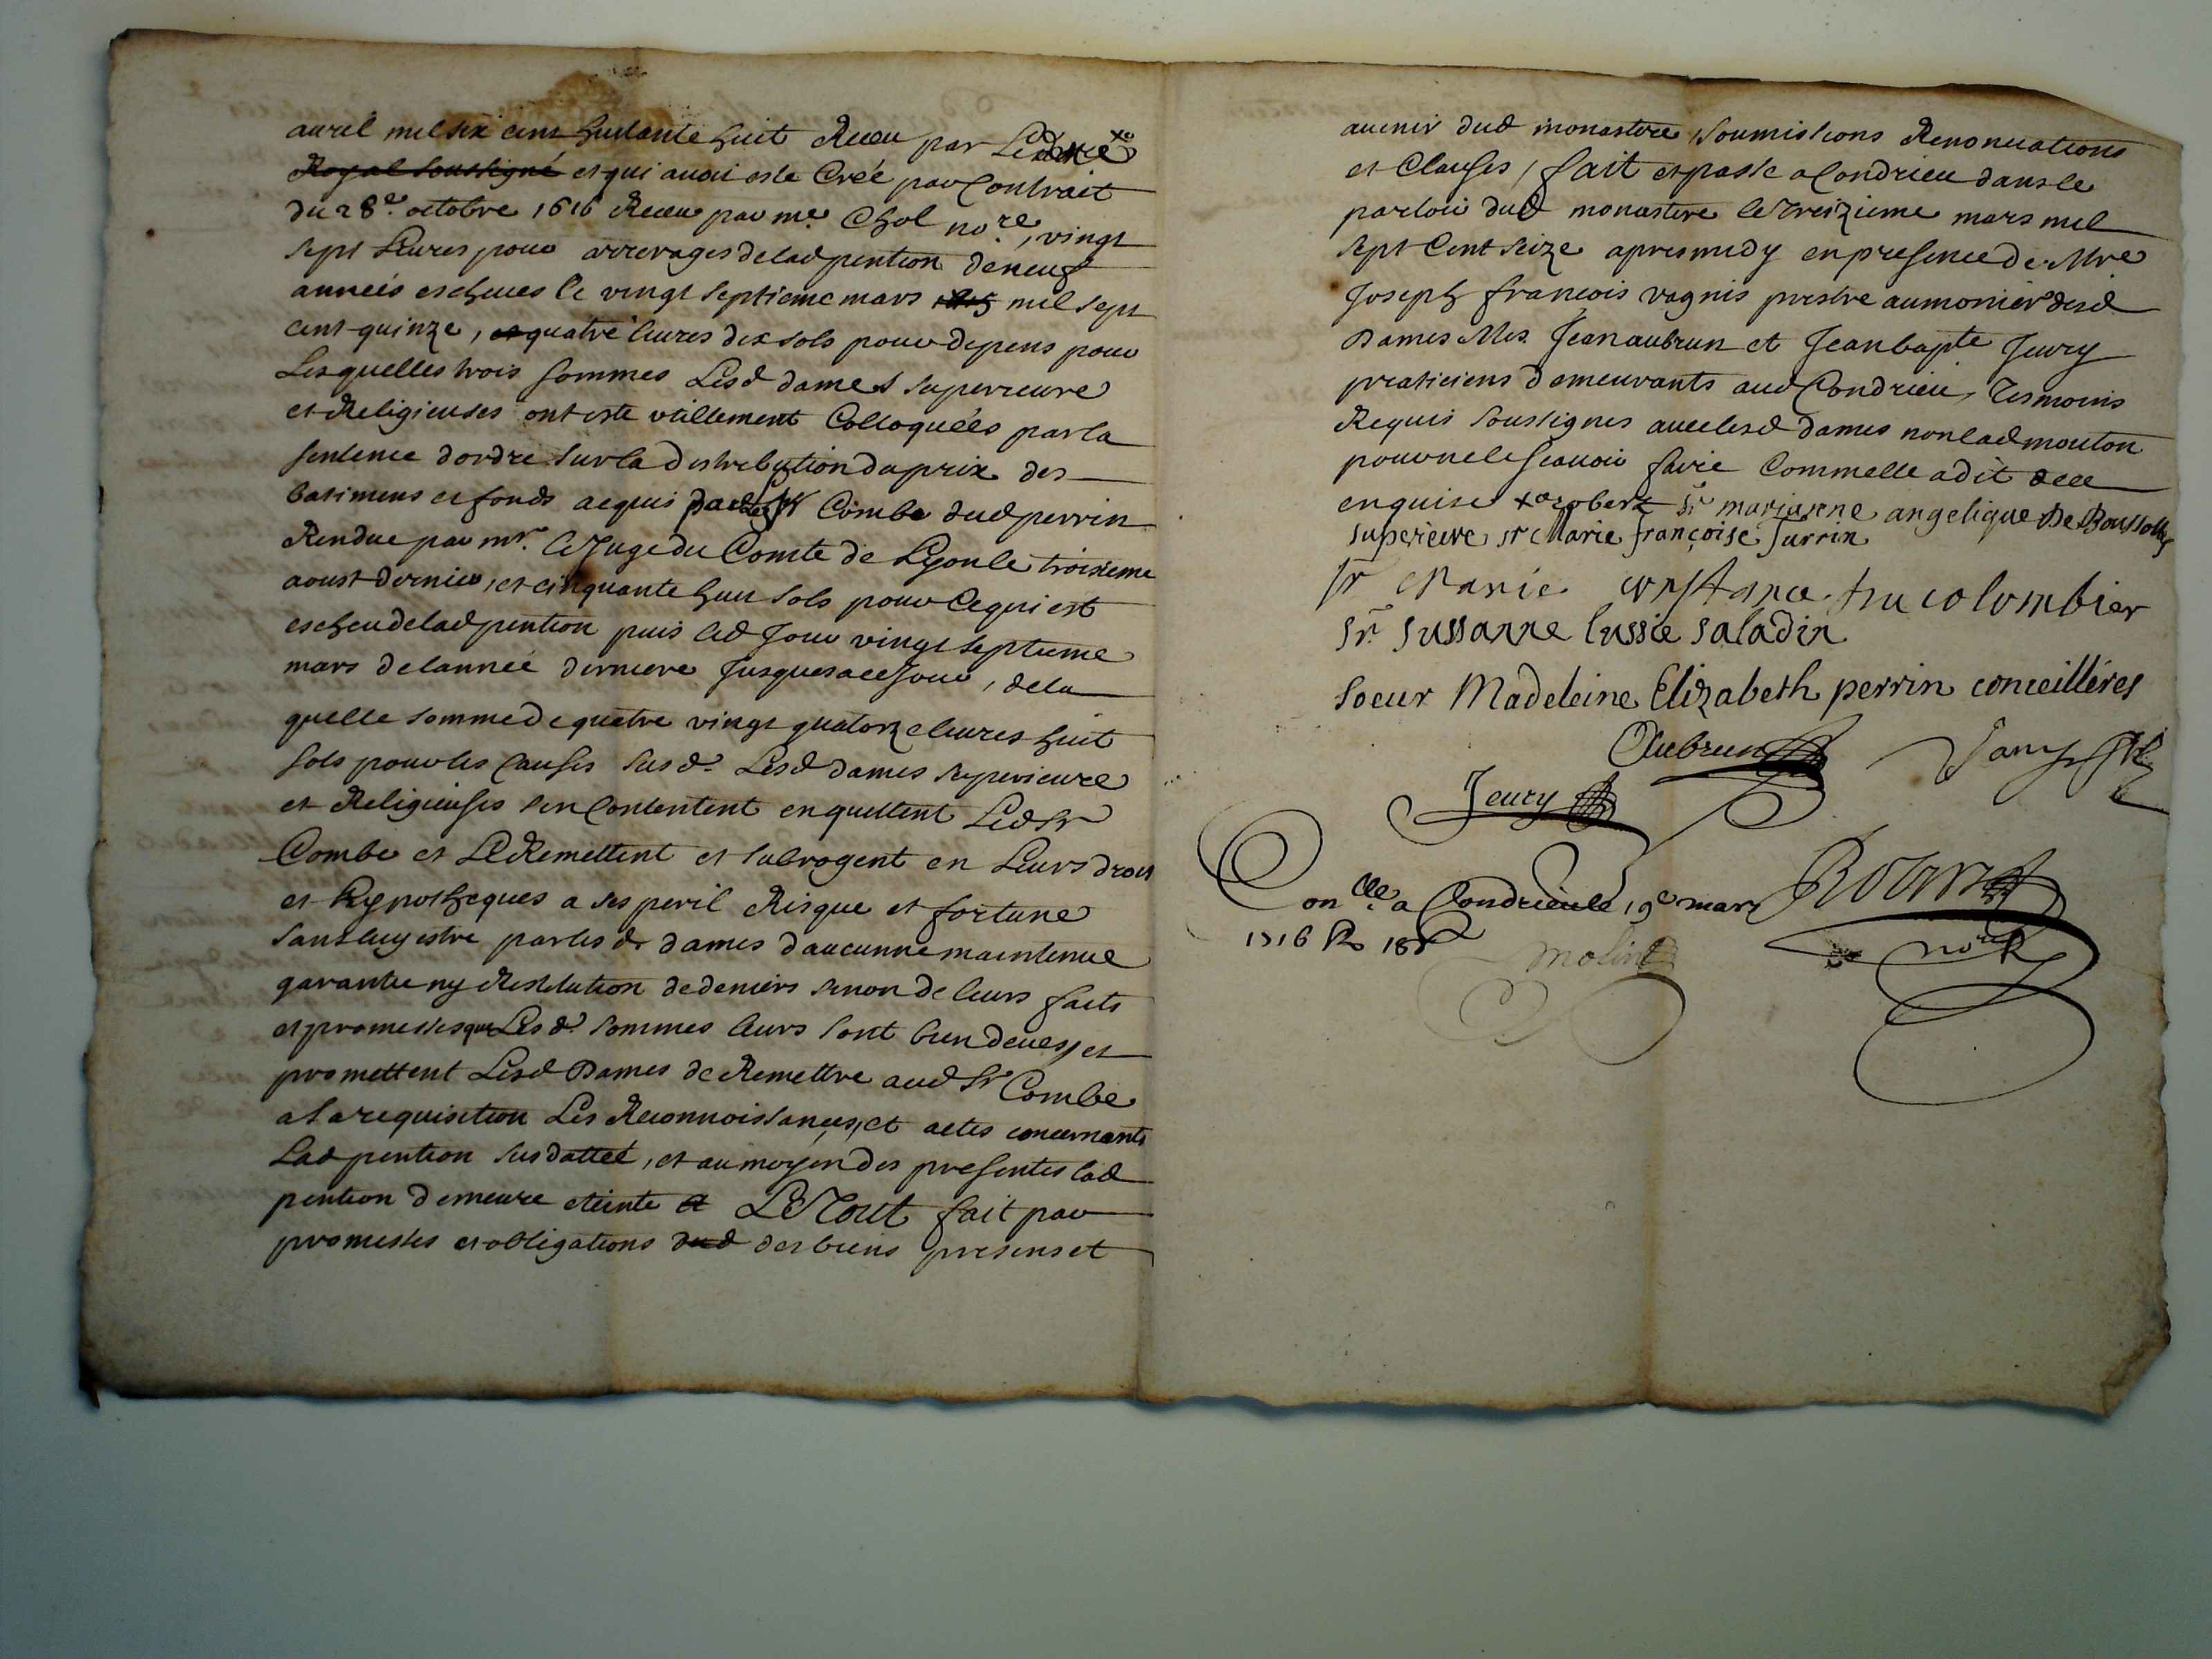 auril mil six cens huitante huit Receu par
Royal soussigné et qui auoit este Creé par Contrait
du 28e. octobre 1616 Receu par me. Chol nore, vingt
sept Liures pour arrerages de lad pention de neuf
années escheues le vingt septieme mars 1715 mil sept
cent quinze, et quatre liures dix sols pour depens pour
Lesquelles trois sommes Lesd dames superieure
et Religieuses ont este vtillement Colloquéés par la
sentence dordre sur la distribution du prix des
batimens et fonds acquis Combe dud perrin
Rendue par mr. le Juge du Comte de Lyon le troisieme
aoust dernier, et cinquante huit sols pour ce qui est
escheu de lad pention puis led Jour vingt septieme
mars de lanneé derniere Jusques a ce Jour, de la
quelle somme de quatre vingt quatorze liures huit
sols pour les Causes susd. Lesd dames superieure
et Religieuses sen Contentent en quittent Led Sr
Combe et Le Remettent et subrogent en Leurs droits
et hypotheques a ses peril Risque et fortune
sans luy estre par lesd. dames daucunne maintenue
garantie ny Restitution de deniers sinon de leurs faits
et promesses que Lesd. sommes leurs sont bien deues, et
promettent Lesd Dames de Remettre aud Sr Combe
a sa requisition Les Reconnoissances, et actes concernants
Lad pention susdatteé, et au moyen des presentes lad
pention demeure eteinte et Le Tout fait par
promesses et obligations dud des biens presens et
auenir dud monastere soumissions Renonciations
et Clauses, fait et passé a Condrieu dans le
parloir dud monastere le Treizieme mars mil
sept Cent seize apres midy en presence de Mre
Joseph francois vagnis prestre aumonier desd
Dames Mes. Jean aubrun et Jean bapte Jeury
praticiens demeurants aud Condrieu, Tesmoins
Requis soussignes auec lesd dames non lad mouton
pour ne le scauoir faire Comme elle a dit dece
enquise robert Sr marianne angelique De
superieure sr Marie françoise Turrin
Sr Marie constance tru colombier
Sr. sussanne lussie saladin
soeur Madeleine Elizabeth perrin conceilléres
Aubrun
Jeury
Conlle. a Condrieu le 19e mars
1716 R 18s
Molin
Robert
nore R